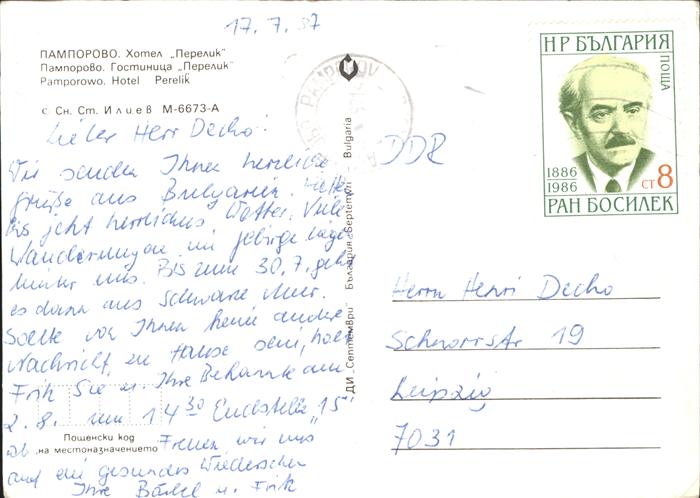 17.7.87
ПАМПОРОВО. Хотел „Перелик“
Пампорово. Гостиница „Перелик“
Pamporowo. Hotel Perelik
с. Сн. Ст. Илиев М-6673-А
Lieber Herr Decho!
Wir senden Ihnen herzliche
Grüße aus Bulgarien. Hatten
bis jetzt herrliches Wetter. Viele
Wanderungen im Gebirge liegen
hinter uns. Bis zum 30.7. geht
es dann ans Schwarze Meer.
Sollte von Ihnen keine andere
Nachricht zu Hause sein, holt
Frik Sie u. Ihre Bekannte am
2.8. um 14 30 Endstelle "15"
ab. Freuen wir uns
auf ein gesundes Wiedersehen
Ihre Bärbel u. Frik
Пощенски код
на местоназначението
ДИ „Септември“ България „Septemvri“ Bulgaria
PAMPOROV
DDR
НР БЪЛГАРИЯ
ПОЩА
1886
1986
СТ 8
РАН БОСИЛЕК
Herrn Henri Decho
Schnorrstr 19
Leipzig
7031